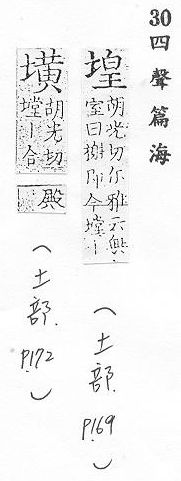 30 四聲篇海
堭 胡光切尔雅云無
室曰榭即今㙶丨
(土部. P.169)
墴 胡光切
㙶丨合
殿
(土部. P.172)